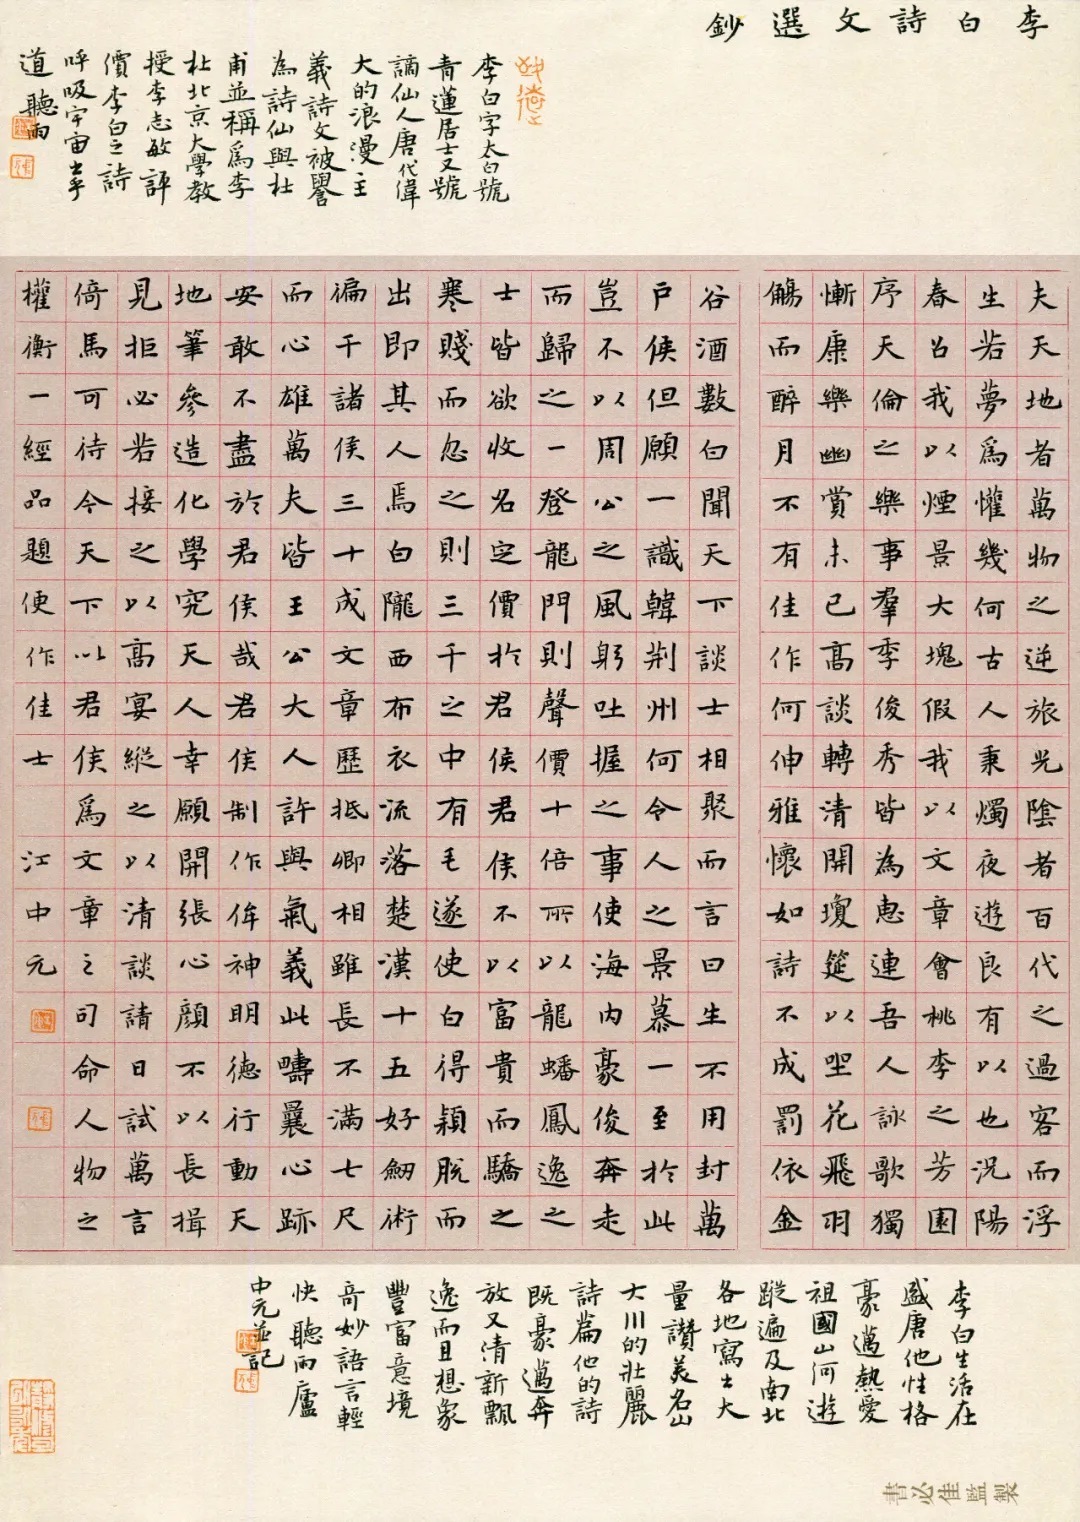 李白詩文選鈔
李白字太白號
青蓮居士又號
謫仙人唐代偉
大的浪漫主
義詩文被譽
為詩仙與杜
甫並稱爲李
杜北京大學教
授李志敏評
價李白之詩
呼吸宇宙出乎
道聽雨
夫天地者萬物之逆旅光陰者百代之過客而浮
生若夢爲懽幾何古人秉燭夜遊良有以也況陽
春召我以煙景大塊假我以文章會桃李之芳園
序天倫之樂事羣季俊秀皆為惠連吾人詠歌獨
慚康樂幽賞未已高談轉清開瓊筵以坐花飛羽
觴而醉月不有佳作何伸雅懷如詩不成罰依金
谷酒數白聞天下談士相聚而言曰生不用封萬
戶侯但願一識韓荆州何令人之景慕一至於此
豈不以周公之風躬吐握之事使海内豪俊奔走
而歸之一登龍門則聲價十倍所以龍蟠鳳逸之
士皆欲收名定價於君侯君侯不以富貴而驕之
寒賤而忽之則三千之中有毛遂使白得穎脫而
出即其人焉白隴西布衣流落楚漢十五好劒術
徧干諸侯三十成文章歷抵卿相雖長不滿七尺
而心雄萬夫皆王公大人許與氣義此疇曩心跡
安敢不盡於君侯哉君侯制作侔神明德行動天
地筆參造化學究天人幸願開張心顏不以長揖
見拒必若接之以高宴縱之以清談請日試萬言
倚馬可待今天下以君侯爲文章之司命人物之
權衡一經品題便作佳士 江中元
李白生活在
盛唐他性格
豪邁熱愛
祖國山河遊
蹤遍及南北
各地寫出大
量讚美名山
大川的壯麗
詩篇他的詩
既豪邁奔
放又清新飄
逸而且想象
豐富意境
奇妙語言輕
快聽雨廬
中元並記
書必佳監製